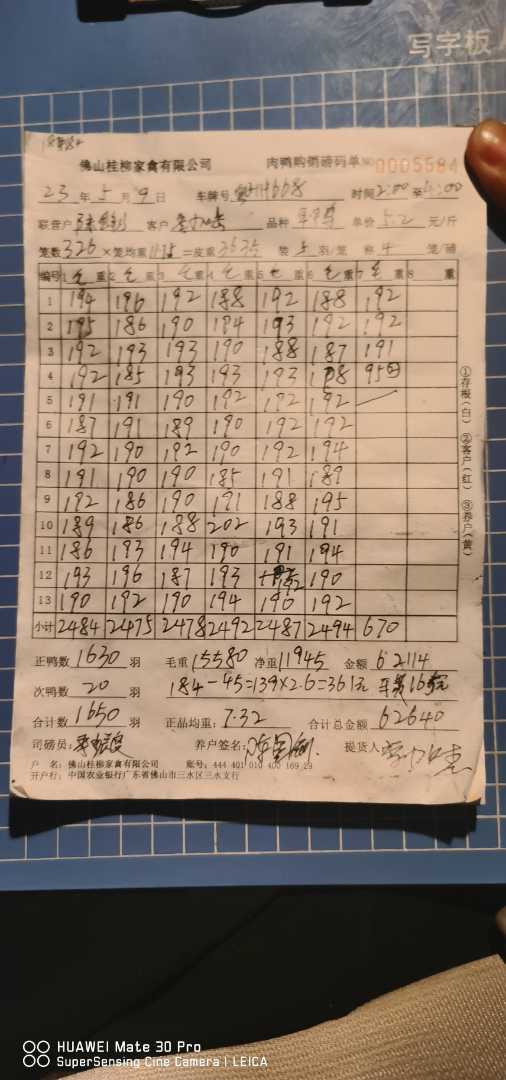 写字板
佛山桂柳家禽有限公司 肉鸭购销磅码单 NO 0005584
23 年 5 月 9 日 车牌号 时间 2:00 至
联营户 客户 品种 单价 5.2 元/斤
笼数 326 × 笼均重 11.15 = 皮重 3635 装 5 羽/笼 称 4 笼/磅
编号 1 毛 重 2 毛 重 3 毛 重 4 毛 重 5 毛 重 6 毛 重 7 毛 重 8 重
1 194 196 192 188 192 188 192
2 195 186 190 194 193 192 192
3 192 193 193 190 188 187 191
4 192 185 193 193 193 188 95
5 191 191 190 192 192 192
6 187 191 189 190 192 192
7 192 190 192 190 192 194
8 191 190 190 185 191 189
9 192 186 190 191 188 195
10 189 186 188 202 193 191
11 186 193 194 190 191 194
12 193 196 187 193 192 190
13 190 192 190 194 190 192
小计 2484 2475 2478 2492 2487 2494 670
①存根(白) ②客户(红) ③养户(黄)
正鸭数 1630 羽 毛重 15580 净重 11945 金额 62114
次鸭数 20 羽 184-45=139×2.6=361元
合计数 1650 羽 正品均重: 7.32 合计总金额 62640
司磅员: 养户签名: 提货人
户 名: 佛山桂柳家禽有限公司 账号: 444 401 010 400 169 29
开户行: 中国农业银行广东省佛山市三水区三水支行
HUAWEI Mate 30 Pro
SuperSensing Cine Camera | LEICA